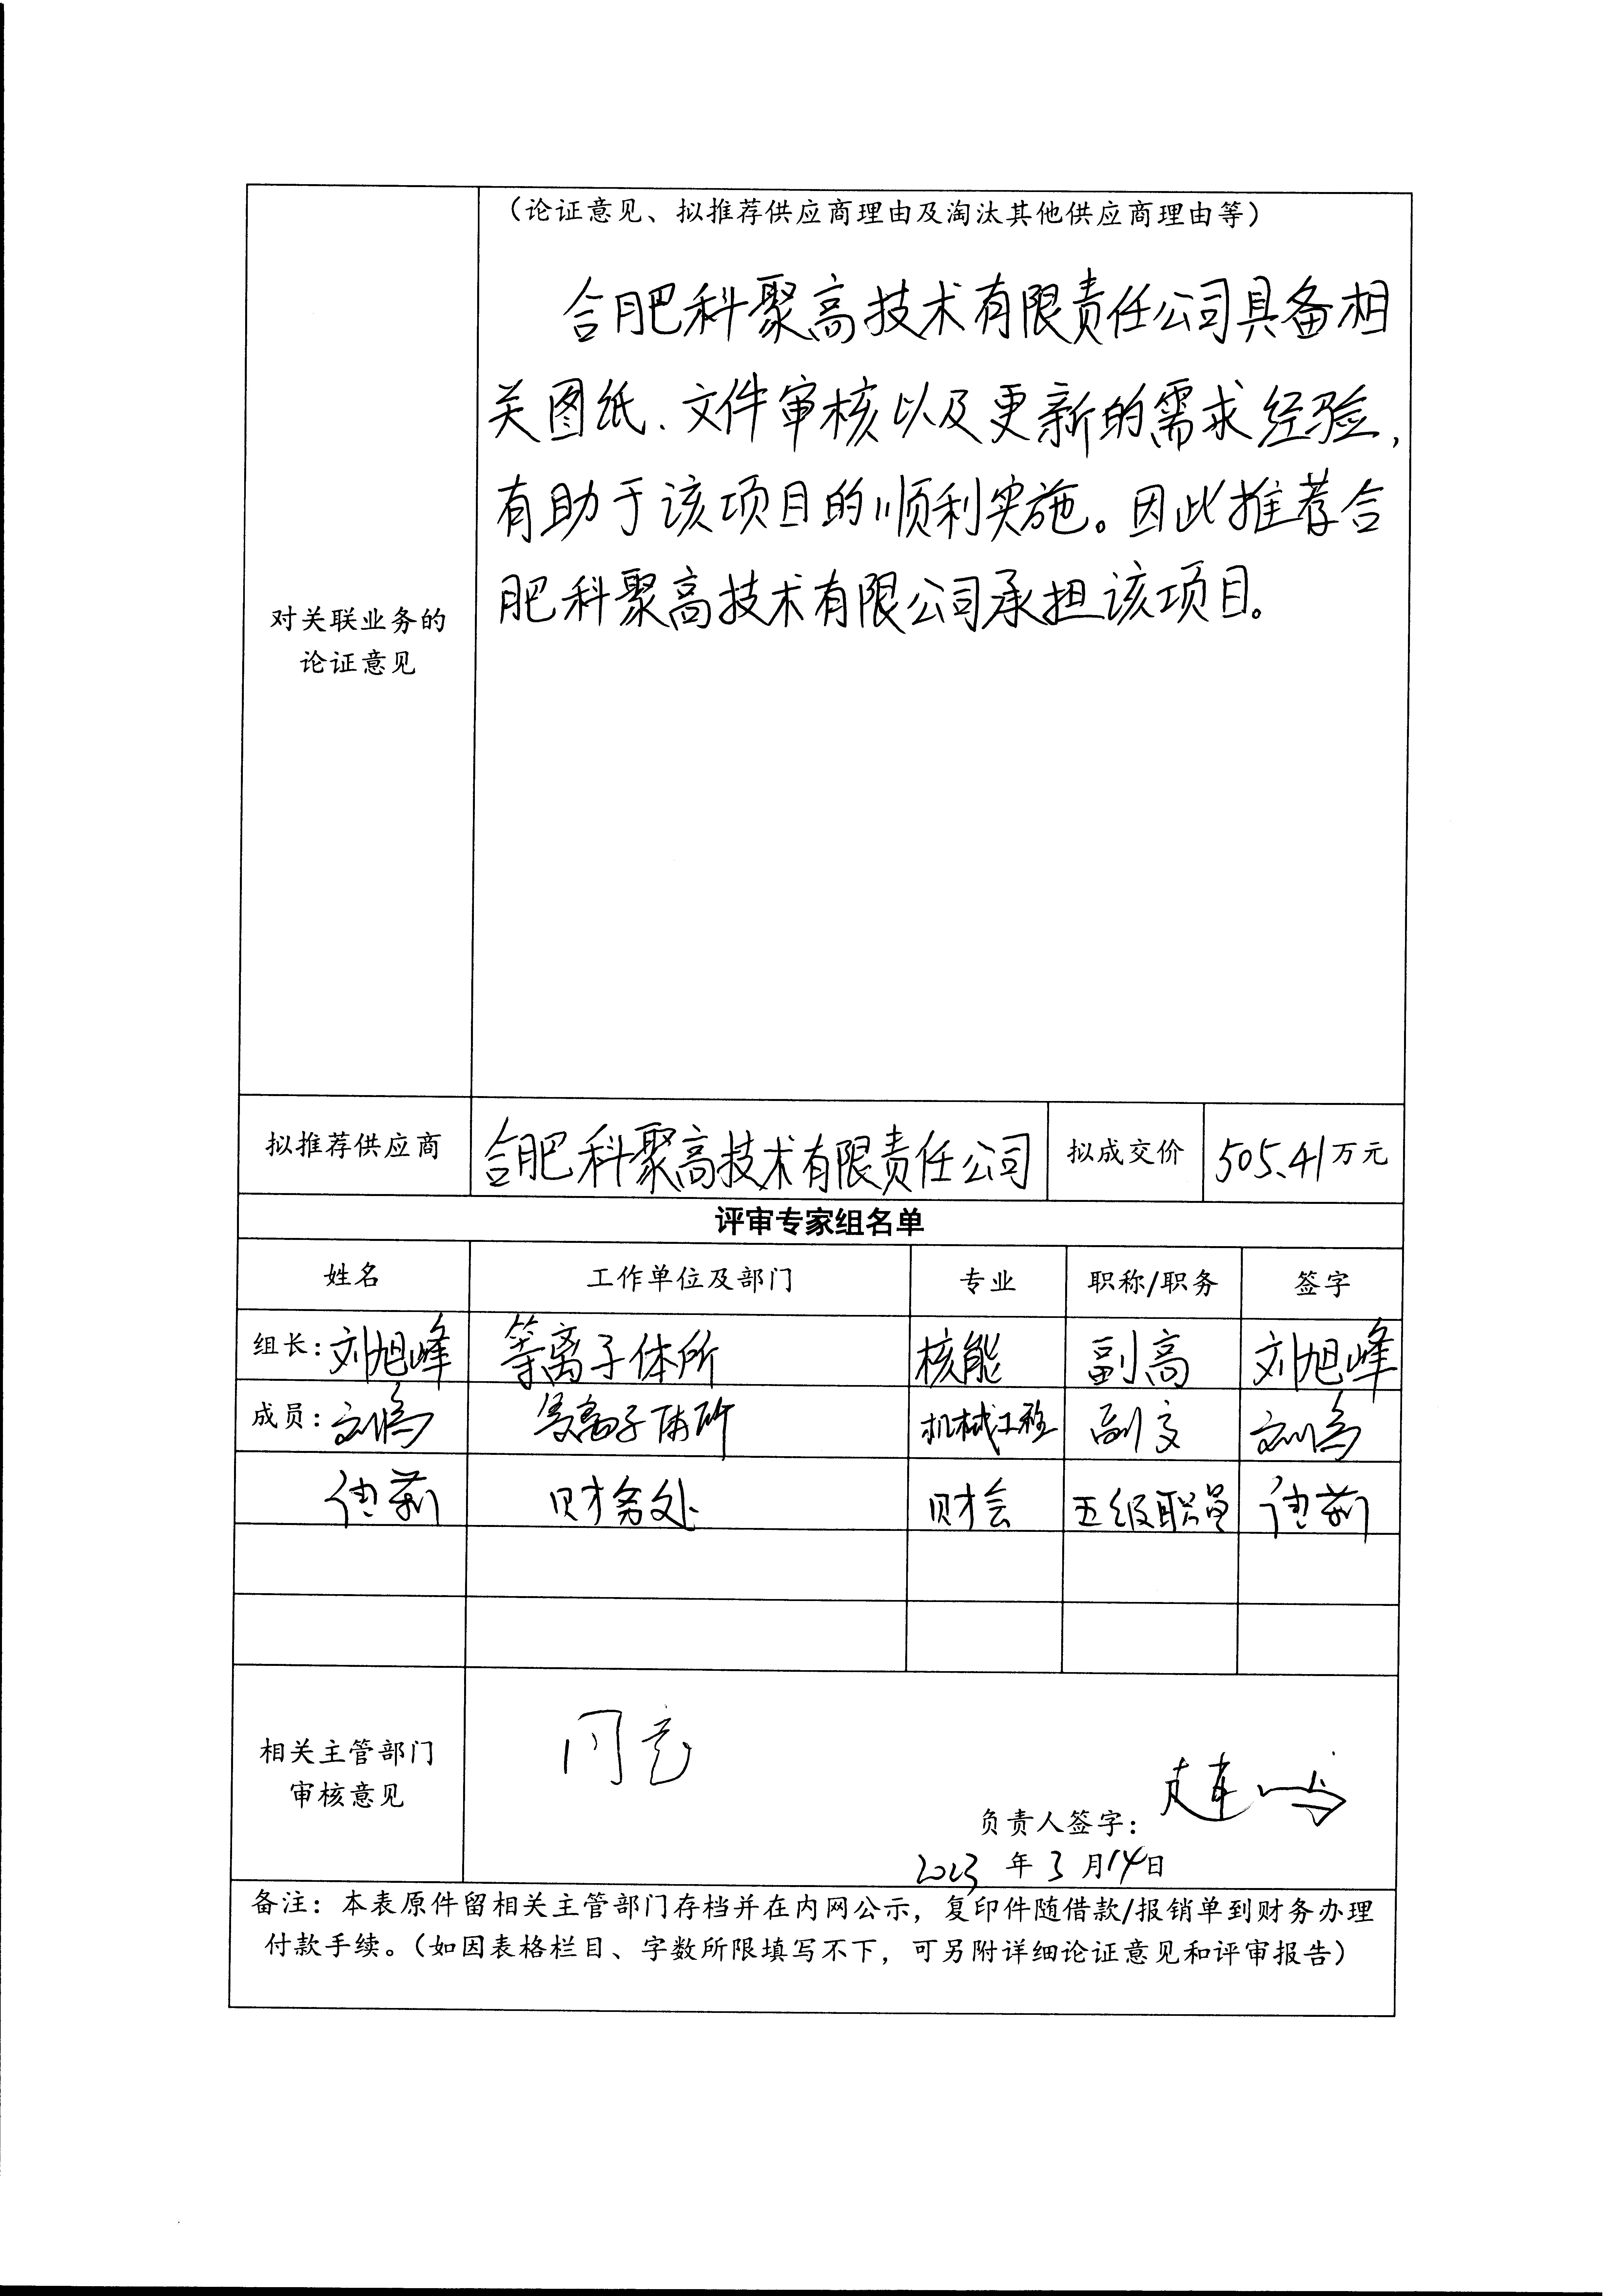 （论证意见、拟推荐供应商理由及淘汰其他供应商理由等）
合肥科聚高技术有限责任公司具备相
关图纸、文件审核以及更新的需求经验，
有助于该项目的顺利实施。因此推荐合
肥科聚高技术有限公司承担该项目。
对关联业务的
论证意见
拟推荐供应商 合肥科聚高技术有限责任公司 拟成交价 505.41万元
评审专家组名单
姓名 工作单位及部门 专业 职称/职务 签字
组长：刘旭峰 等离子体所 核能 副高 刘旭峰
成员： 等离子体所 机械工程 副高
财务处 财会 五级职员
相关主管部门
审核意见
同意
负责人签字：
2023年3月14日
备注：本表原件留相关主管部门存档并在内网公示，复印件随借款/报销单到财务办理
付款手续。（如因表格栏目、字数所限填写不下，可另附详细论证意见和评审报告）